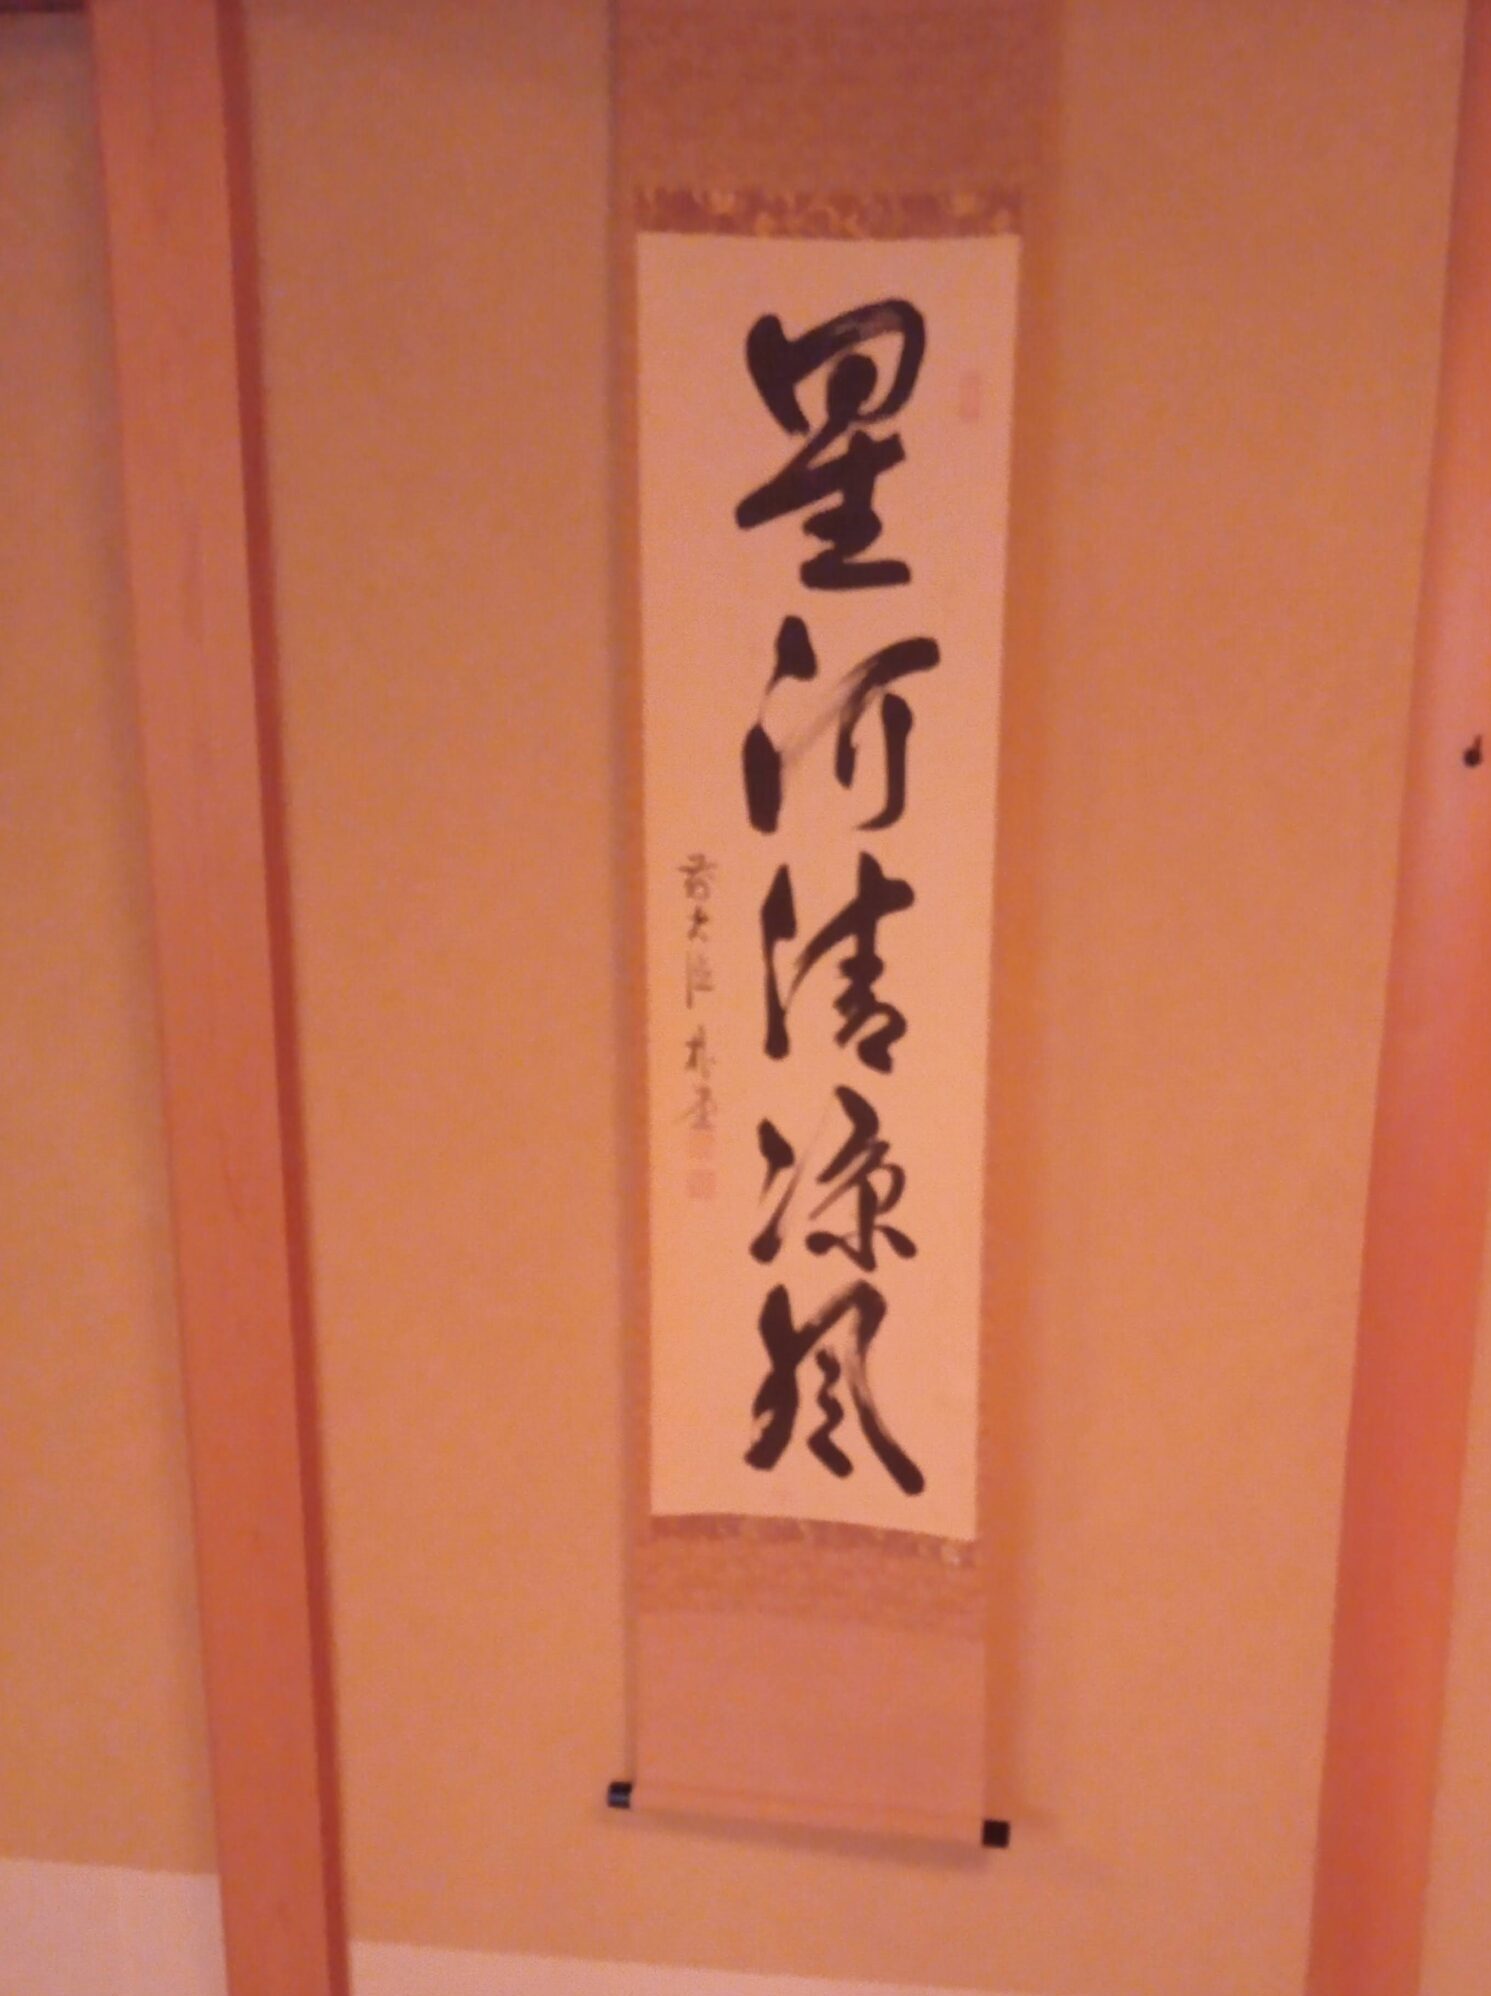 星河清涼風
前大徳